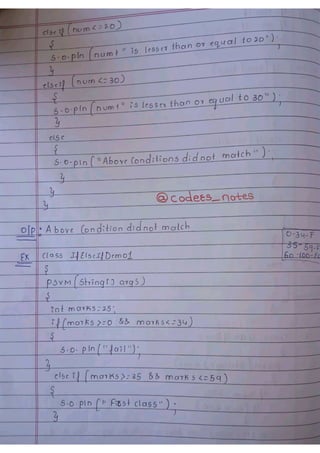 else if (num<=20)
{
S.o.pln (num+" is lesser than or equal to 20");
}
else if (num<=30)
{
S.o.pln (num+" is lesser than or equal to 30");
}
else
{
S.o.pln ("Above Conditions did not match");
}
}
}
@codees_notes
O/P : Above Condition did not match
0-34-F
35-59-
60-100-
Ex class IfElseIfDemo1
{
PSVM (String[] args)
{
int marks=25;
if (marks>=0 && marks<=34)
{
S.o.pln ("fail");
}
else if (marks>=35 && marks<=59)
{
S.o.pln ("First class");
}